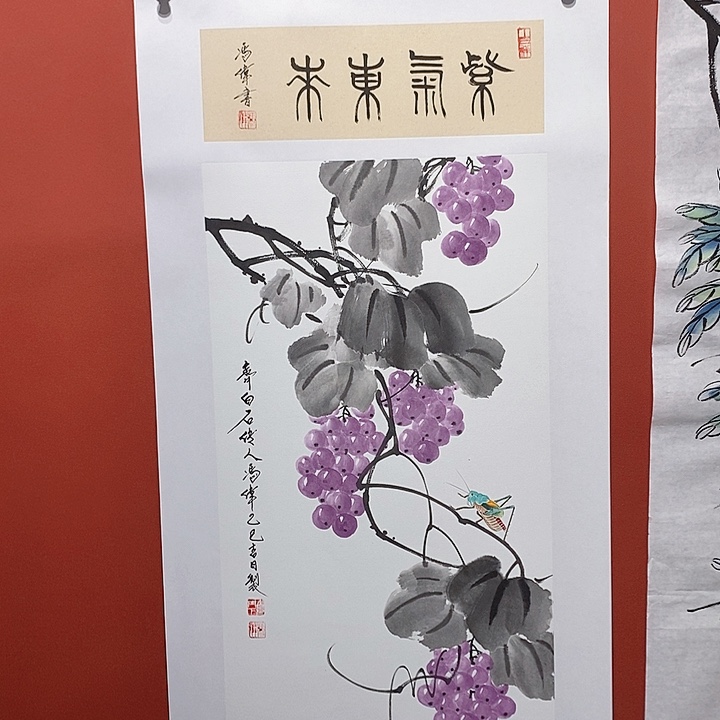 紫氣東來
馮偉書
齊白石傳人馮偉乙巳吉日製